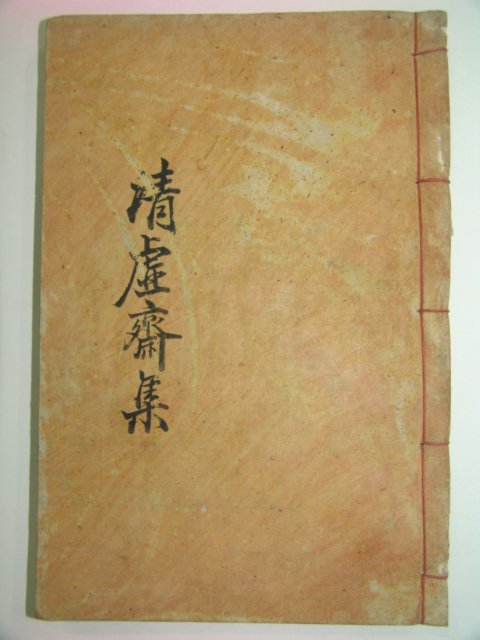 清虛齋集